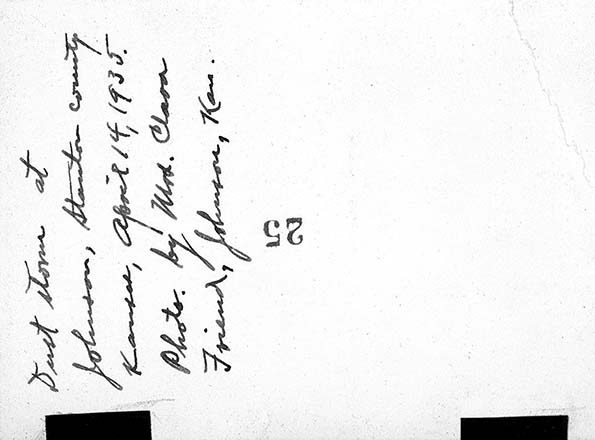 Dust storm at
Johnson, Stanton county
Kansas, April 14, 1935.
Photo. by Mrs. Clara
Friend, Johnson, Kan.
25